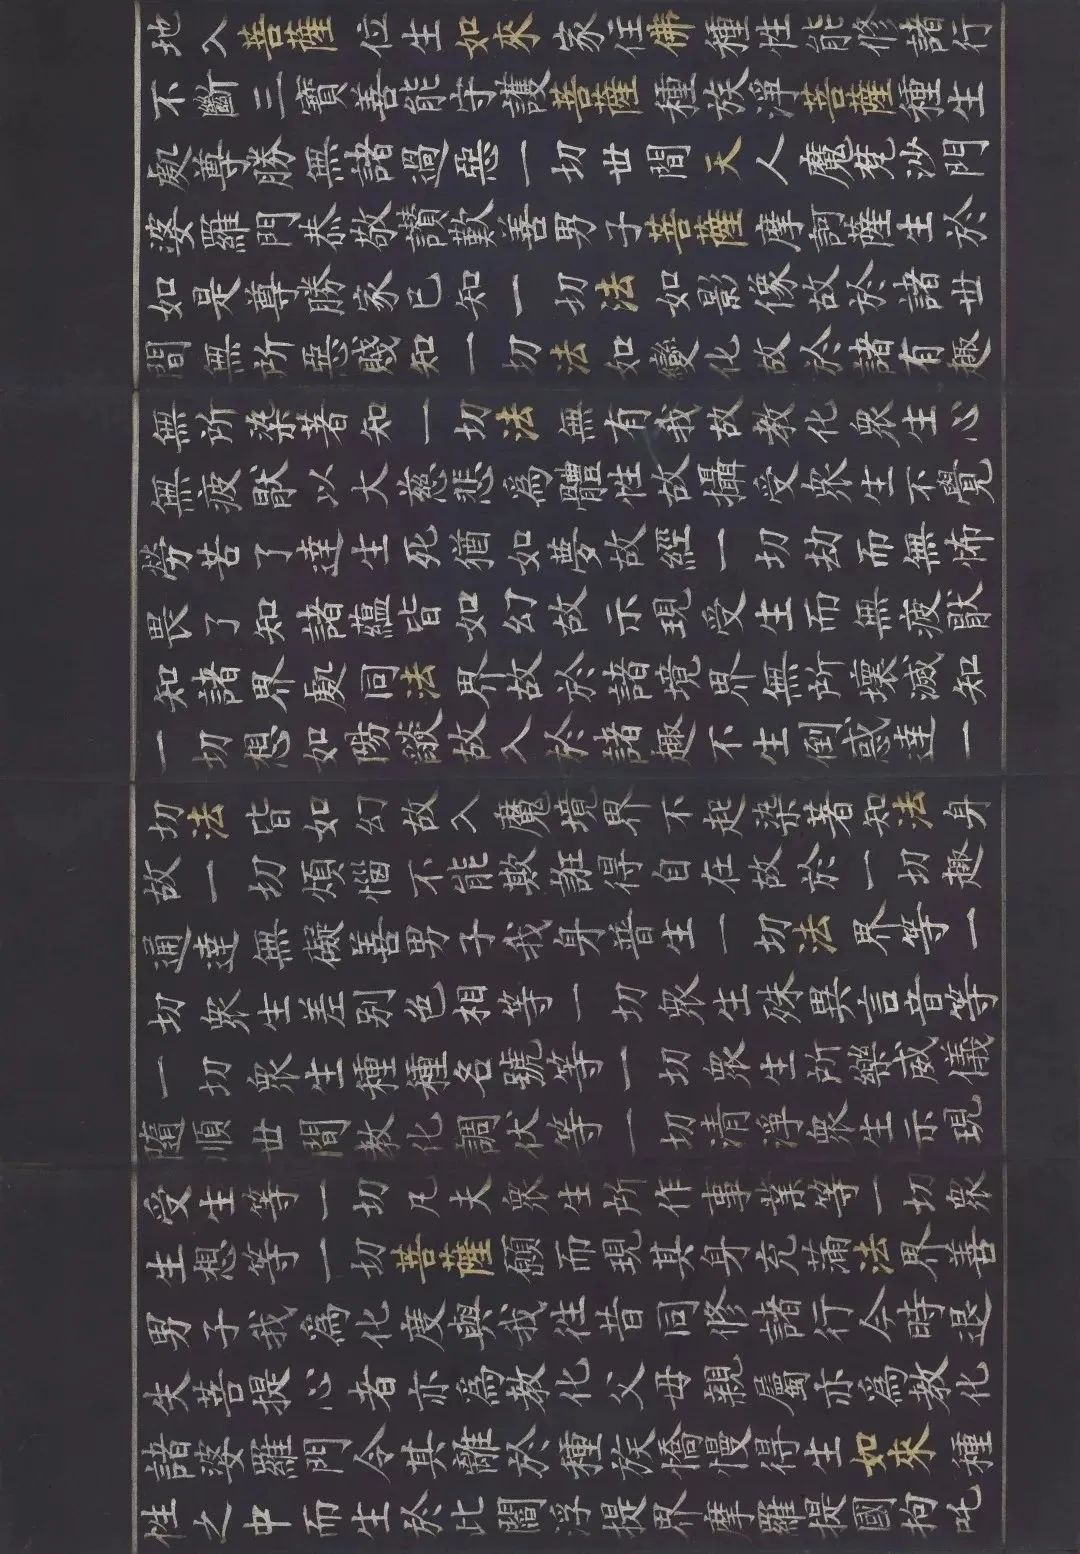 地入菩薩位生如來家住佛種性能修諸行
不斷三寶善能守護菩薩種族淨菩薩種生
處尊勝無諸過惡一切世間天人魔梵沙門
婆羅門恭敬讚歎善男子菩薩摩訶薩生於
如是尊勝家已知一切法如影像故於諸世
間無所惡賤知一切法如變化故於諸有趣
無所染著知一切法無有我故教化衆生心
無疲猒以大慈悲為體性故攝受衆生不覺
勞苦了達生死猶如夢故經一切劫而無怖
畏了知諸蘊皆如幻故示現受生而無疲猒
知諸界處同法界故於諸境界無所壞滅知
一切想如陽燄故入於諸趣不生倒惑達一
切法皆如幻故入魔境界不起染著知法身
故一切煩惱不能欺誑得自在故於一切趣
通達無礙善男子我身普生一切法界等一
切衆生差別色相等一切衆生殊異言音等
一切衆生種種名號等一切衆生所樂威儀
隨順世間教化調伏等一切清淨衆生示現
受生等一切凡夫衆生所作事業等一切衆
生想等一切菩薩願而現其身充滿法界善
男子我為化度與我往昔同修諸行今時退
失菩提心者亦為教化父母親屬亦為教化
諸婆羅門令其離於種族憍慢得生如來種
性之中而生於此閻浮提界摩羅提國拘吒